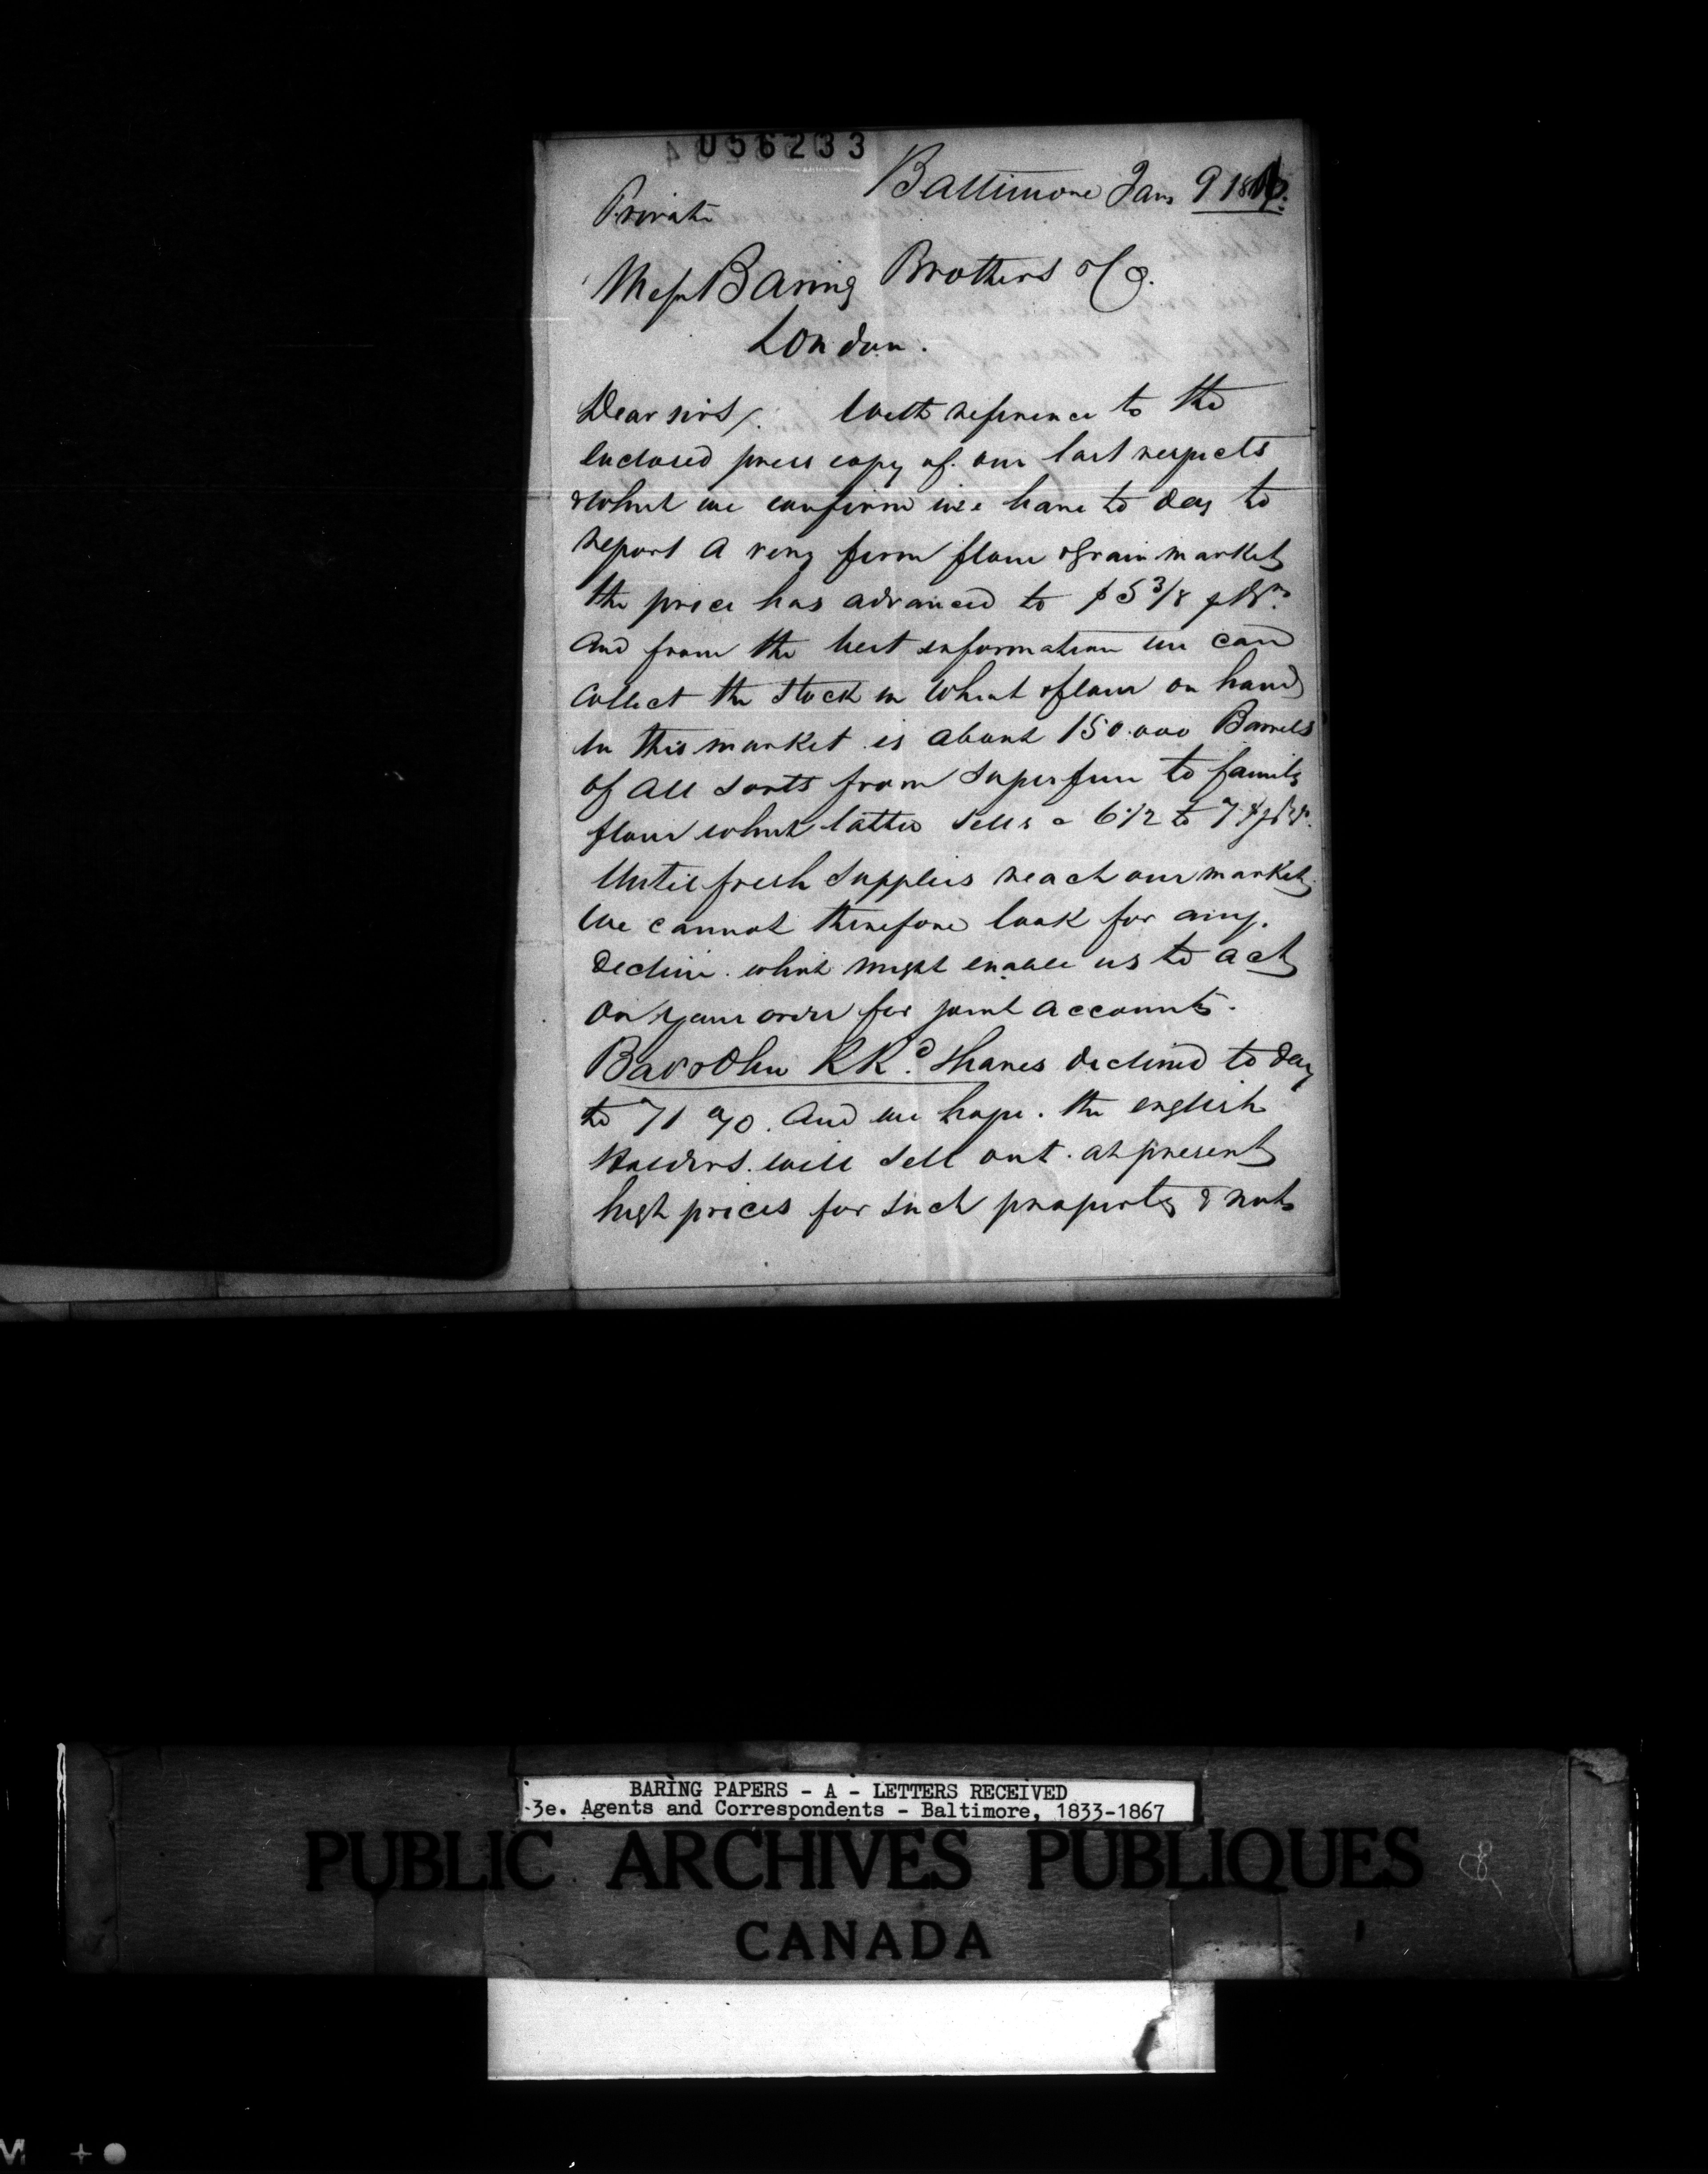 056233
Baltimore Jan 9 18
Private
Messrs Baring Brothers & Co.
London.
Dear sirs/. With reference to the
enclosed press copy of our last respects
which we confirm we have to day to
report a very firm flour & grain market
the price has advanced to $5 3/8 p Br.
and from the best information we can
collect the stock in wheat & flour on hand
in this market is about 150.000 Barrels
of all sorts from superfine to family
flour which latter sells a 6 1/2 to 7 $ p
Until fresh supplies reach our market
we cannot therefore look for any
decline which might enable us to act
on your order for joint accounts.
Ohio RRd. shares declined to day
to 71 %. and we hope the english
Holders will sell out at present
high prices for such property & not
BARING PAPERS - A - LETTERS RECEIVED
3e. Agents and Correspondents - Baltimore, 1833-1867
PUBLIC ARCHIVES PUBLIQUES
CANADA